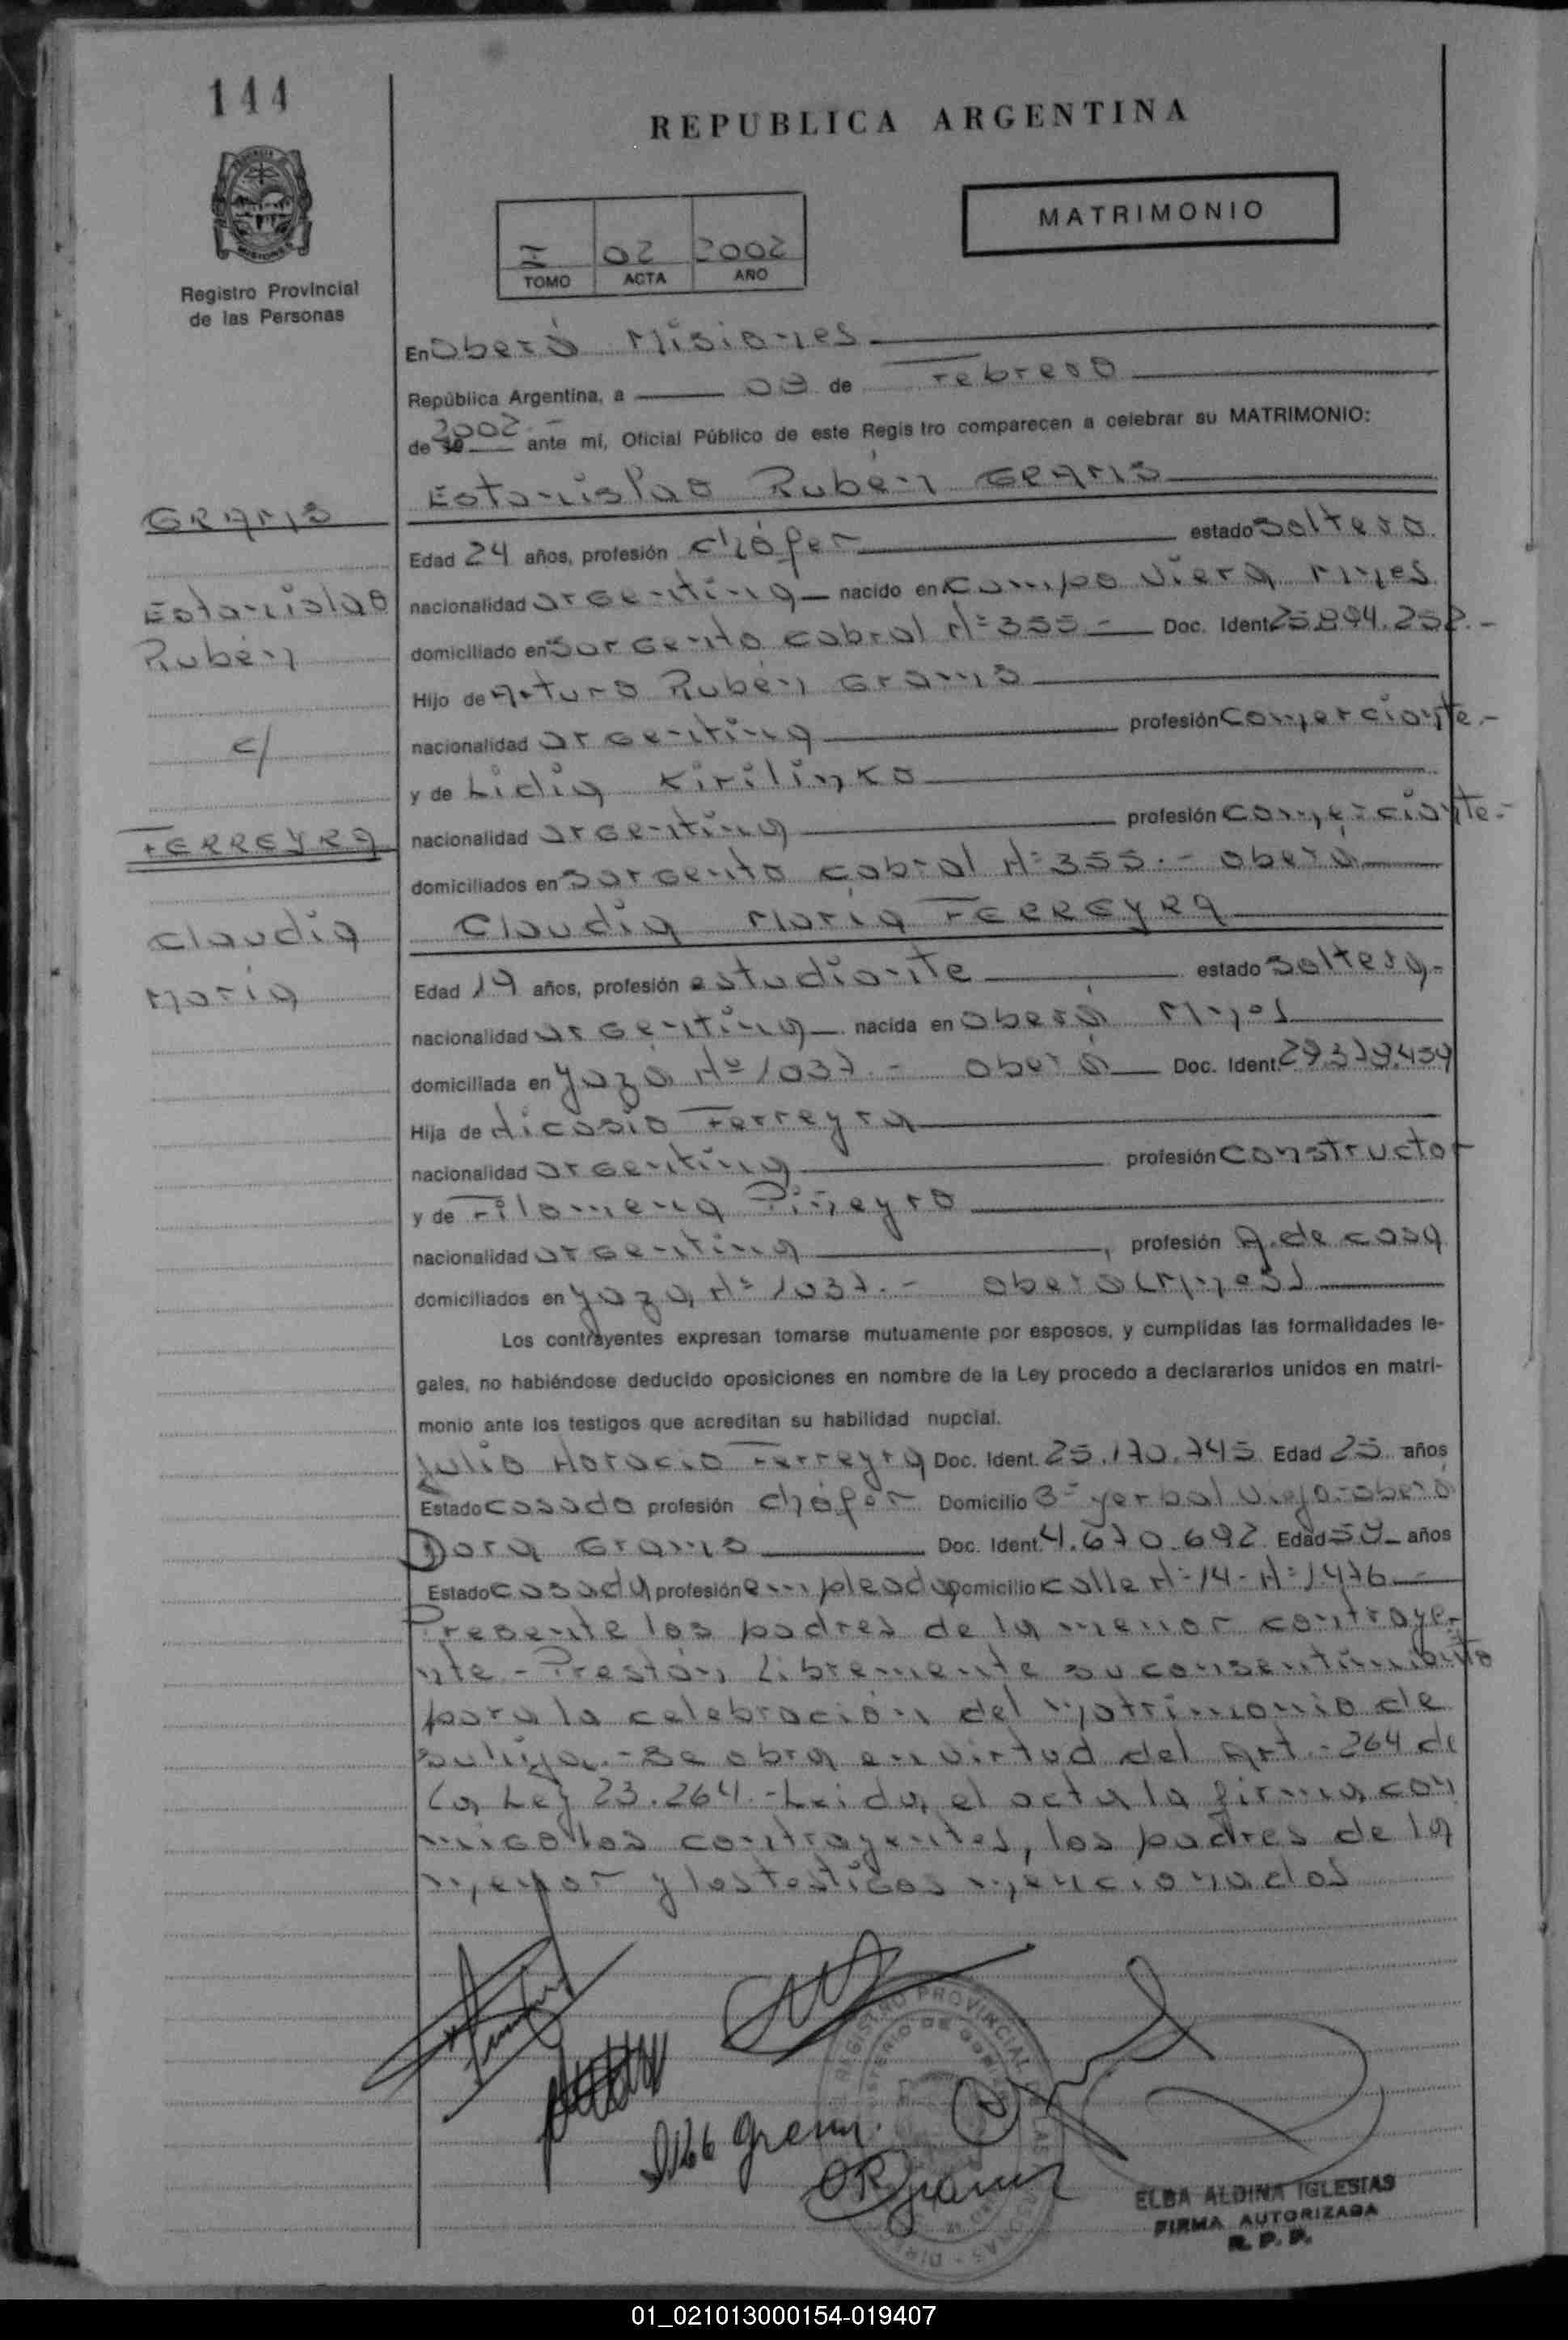 144
REPUBLICA ARGENTINA
MATRIMONIO
I 02 2002
TOMO ACTA AÑO
Registro Provincial
de las Personas
En Oberá Misiones
República Argentina, a 09 de Febrero
de 2002 ante mí, Oficial Público de este Registro comparecen a celebrar su MATRIMONIO:
Estanislao Rubén GRAMS
GRAMS
Estanislao
Rubén
c/
FERREYRA
Claudia
María
Edad 24 años, profesión chófer estado soltero
nacionalidad argentina nacido en Campo Viera Mnes
domiciliado en Sargento Cabral Nº 355.- Doc. Ident. 25.894.252.-
Hijo de Arturo Rubén Grams
nacionalidad argentina profesión comerciante.-
y de Lidia Kirilinko
nacionalidad argentina profesión comerciante.-
domiciliados en Sargento Cabral Nº 355.- Oberá
Claudia María FERREYRA
Edad 19 años, profesión estudiante estado soltera-
nacionalidad argentina nacida en Oberá Mnes
domiciliada en Yazá Nº 1037.- Oberá Doc. Ident. 29.379.459
Hija de Nicasio Ferreyra
nacionalidad argentina profesión constructor
y de Filomena Piñeyro
nacionalidad argentina, profesión A. de casa
domiciliados en Yazá Nº 1037.- Oberá (Mnes)
Los contrayentes expresan tomarse mutuamente por esposos, y cumplidas las formalidades le-
gales, no habiéndose deducido oposiciones en nombre de la Ley procedo a declararlos unidos en matri-
monio ante los testigos que acreditan su habilidad nupcial.
Julio Horacio Ferreyra Doc. Ident. 25.170.745 Edad 25 años
Estado casado profesión chófer Domicilio 3º Yerbal Viejo-Oberá
Dora Grams Doc. Ident. 4.670.692 Edad 59 años
Estado casada profesión empleada Domicilio calle Nº 14- Nº 1.476
Presente los padres de la menor contraye-
nte - Prestan libremente su consentimiento
para la celebración del matrimonio de
su hija.- Se obra en virtud del Art.- 264 de
la Ley 23.264.- Leida el acta la firma con
migo los contrayentes, los padres de la
menor y los testigos mencionados
REGISTRO PROVINCIAL DE LAS PERSONAS
ELBA ALDINA IGLESIAS
FIRMA AUTORIZADA
R. P. P.
01_021013000154-019407